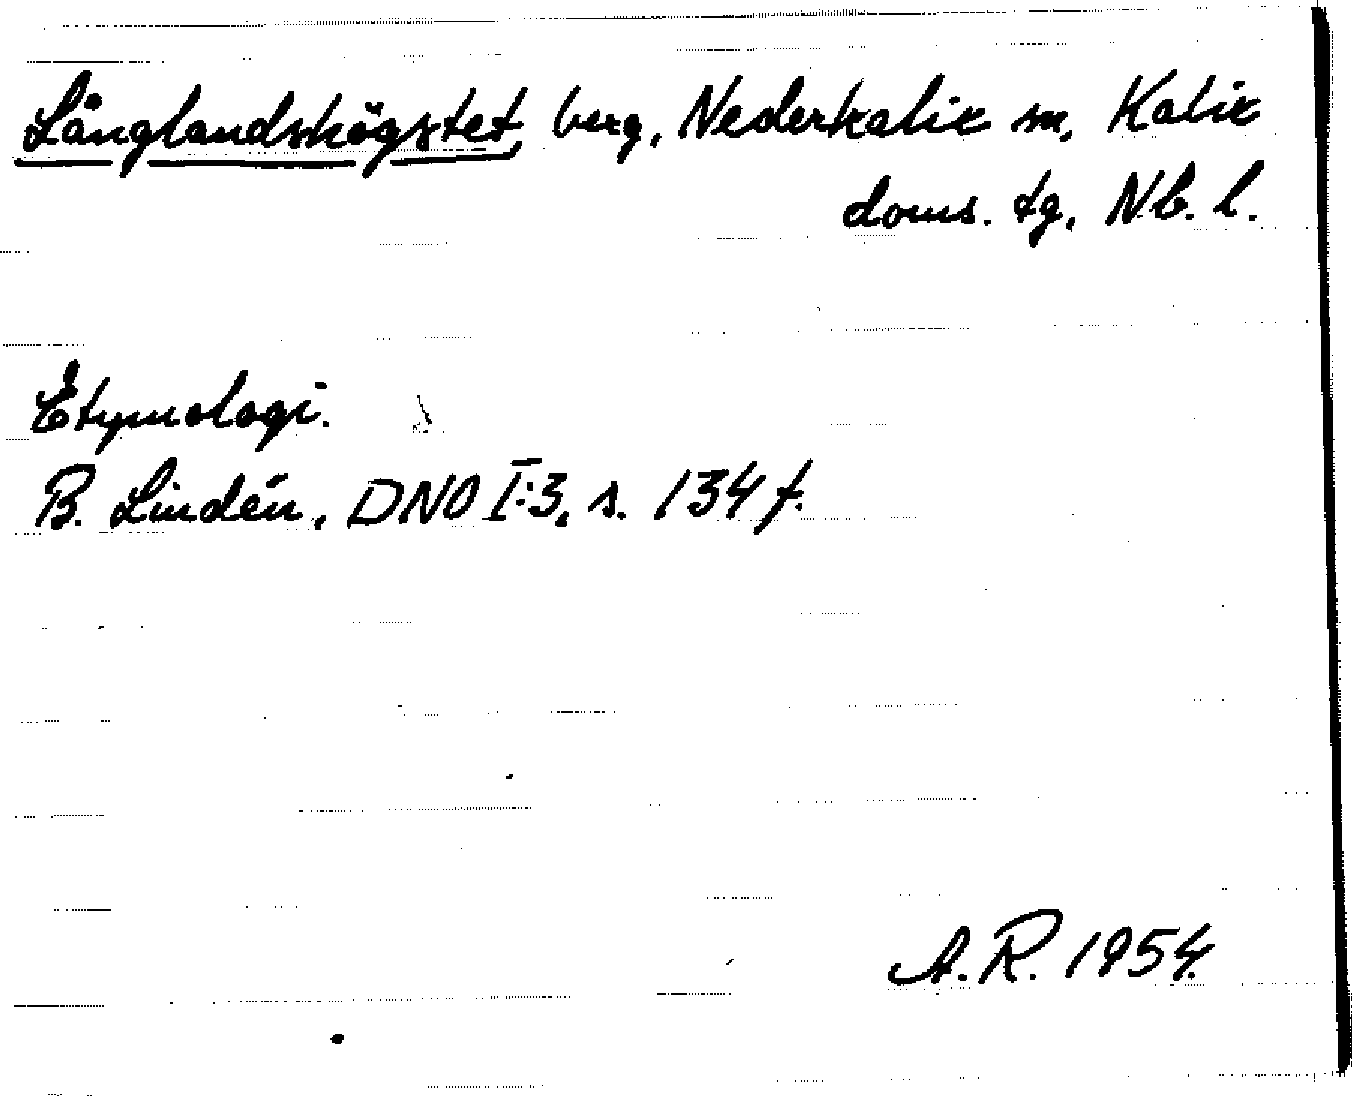 Långlandshögstet, berg, Nederkalix sn, Kalix
doms. tg, Nb. l.
Etymologi.
B. Lindén, DNO I:3, s. 134 f.
A. R. 1954.